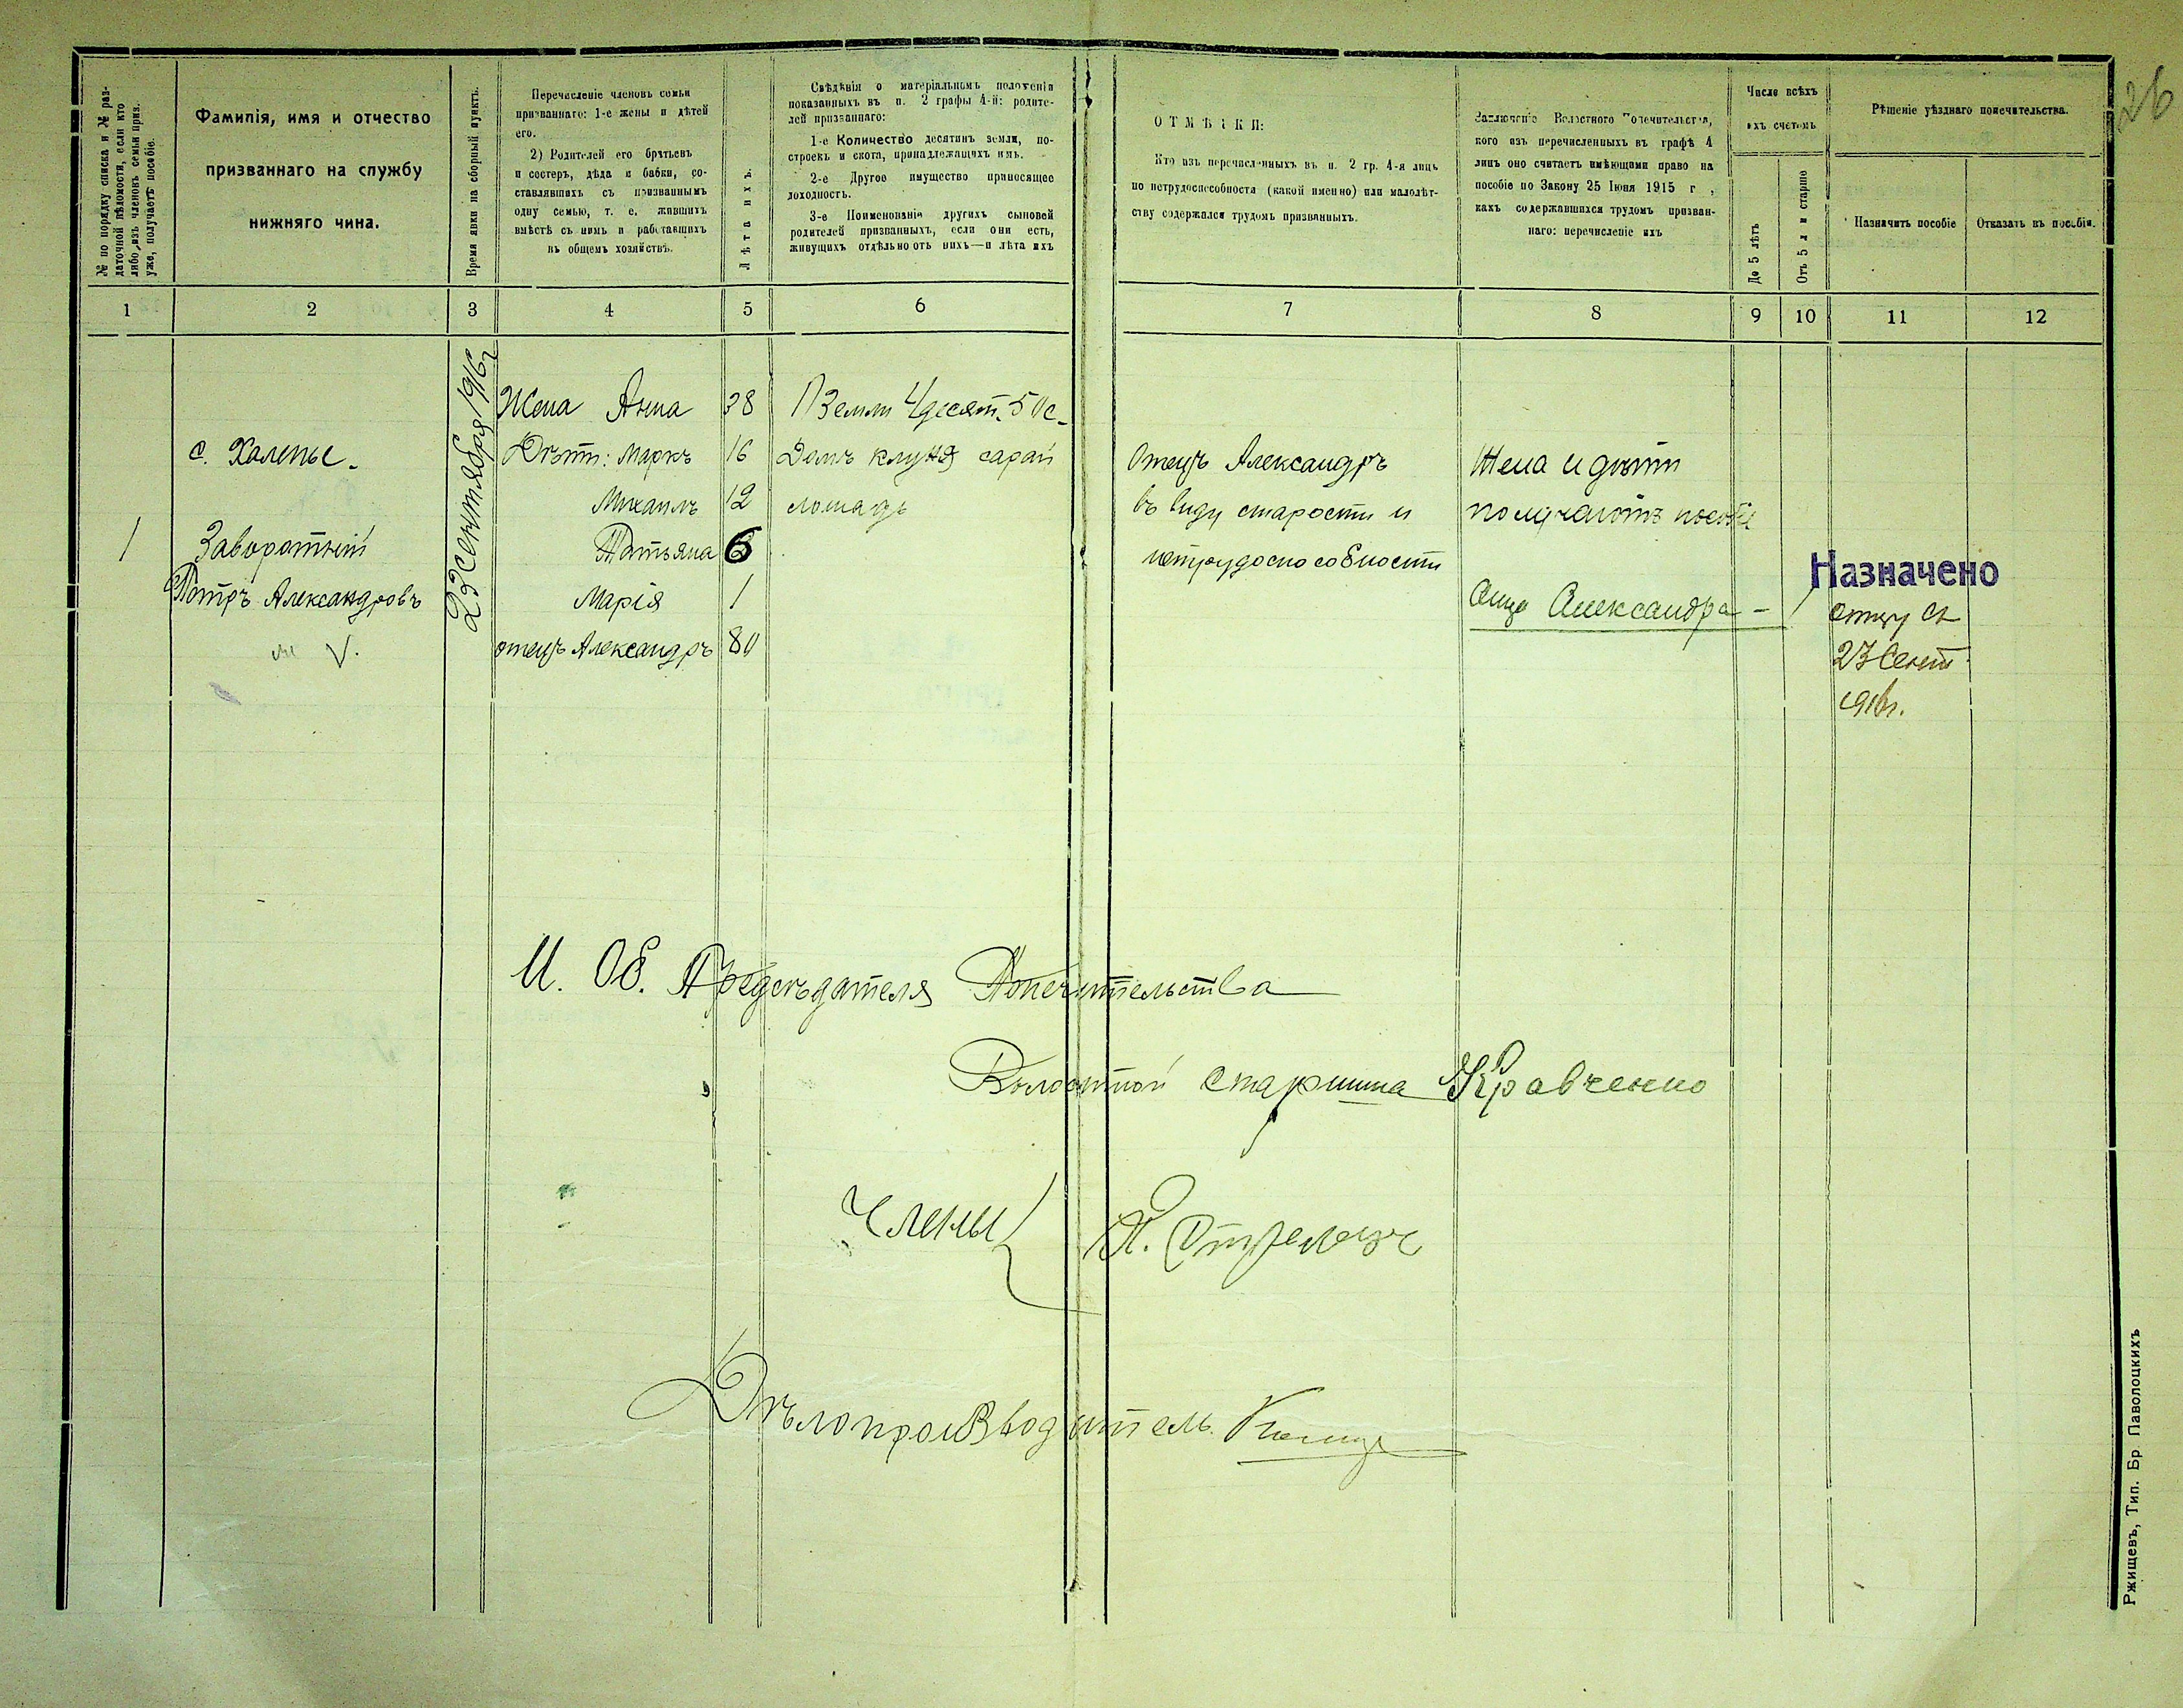 26
№ по порядку списка и № раз-
даточной вѣдомости, если кто
либо изъ членовъ семьи приз.
уже, получаетъ пособіе.
Фамилія, имя и отчество
призваннаго на службу
нижняго чина.
Время явки на сборный пунктъ.
Перечисленіе членовъ семьи
призваннаго: 1-е жены и дѣтей
его.
2) Родителей его братьевъ
и сестеръ, дѣда и бабки, со-
ставлявшихъ съ призваннымъ
одну семью, т. е. жившихъ
вмѣстѣ съ нимъ и работавшихъ
въ общемъ хозяйствѣ.
Лѣта ихъ.
Свѣдѣнія о матеріальномъ положеніи
показанныхъ въ п. 2 графы 4-й: родите-
лей призваннаго:
1-е Количество десятинъ земли, по-
строекъ и скота, принадлежащихъ имъ.
2-е Другое имущество приносящее
доходность.
3-е Поименованіе другихъ сыновей
родителей призванныхъ, если они есть,
живущихъ отдѣльно отъ нихъ—и лѣта ихъ
ОТМѢТКИ:
Кто изъ перечисленныхъ въ п. 2 гр. 4-я лицъ
по нетрудоспособности (какой именно) или малолѣт-
ству содержался трудомъ призванныхъ.
Заключеніе Волостного Попечительства,
кого изъ перечисленныхъ въ графѣ 4
лицъ оно считаетъ имѣющими право на
пособіе по Закону 25 Іюня 1915 г ,
какъ содержавшихся трудомъ призван-
наго: перечисленіе ихъ
Число всѣхъ
ихъ счетомъ
До 5 лѣтъ
Отъ 5 л и старше
Рѣшеніе уѣзднаго попечительства.
Назначить пособіе
Отказать въ пособіи.
1 2 3 4 5 6 7 8 9 10 11 12
с. Халепье.
1 Заворотный
Петръ Александровъ
V.
23 Сентября 1916 г
Жена Анна 38
Дѣти: Маркъ 16
Михаилъ 12
Татьяна 6
Марія 1
отецъ Александръ 80
1) Земли 4 десят. 50 с.
Домъ клуня сарай
лошадь
Отецъ Александръ
въ виду старости и
нетрудоспособности
Жена и дѣти
получаютъ пособіе
Отца Александра - 1
Назначено
отцу съ
23 Сент
1916 г.
И. Об. Предсѣдателя Попечительства
Волостной старшина Кравченко
Члены
Дѣлопроизводитель
Ржищевъ, Тип. Бр Паволоцкихъ